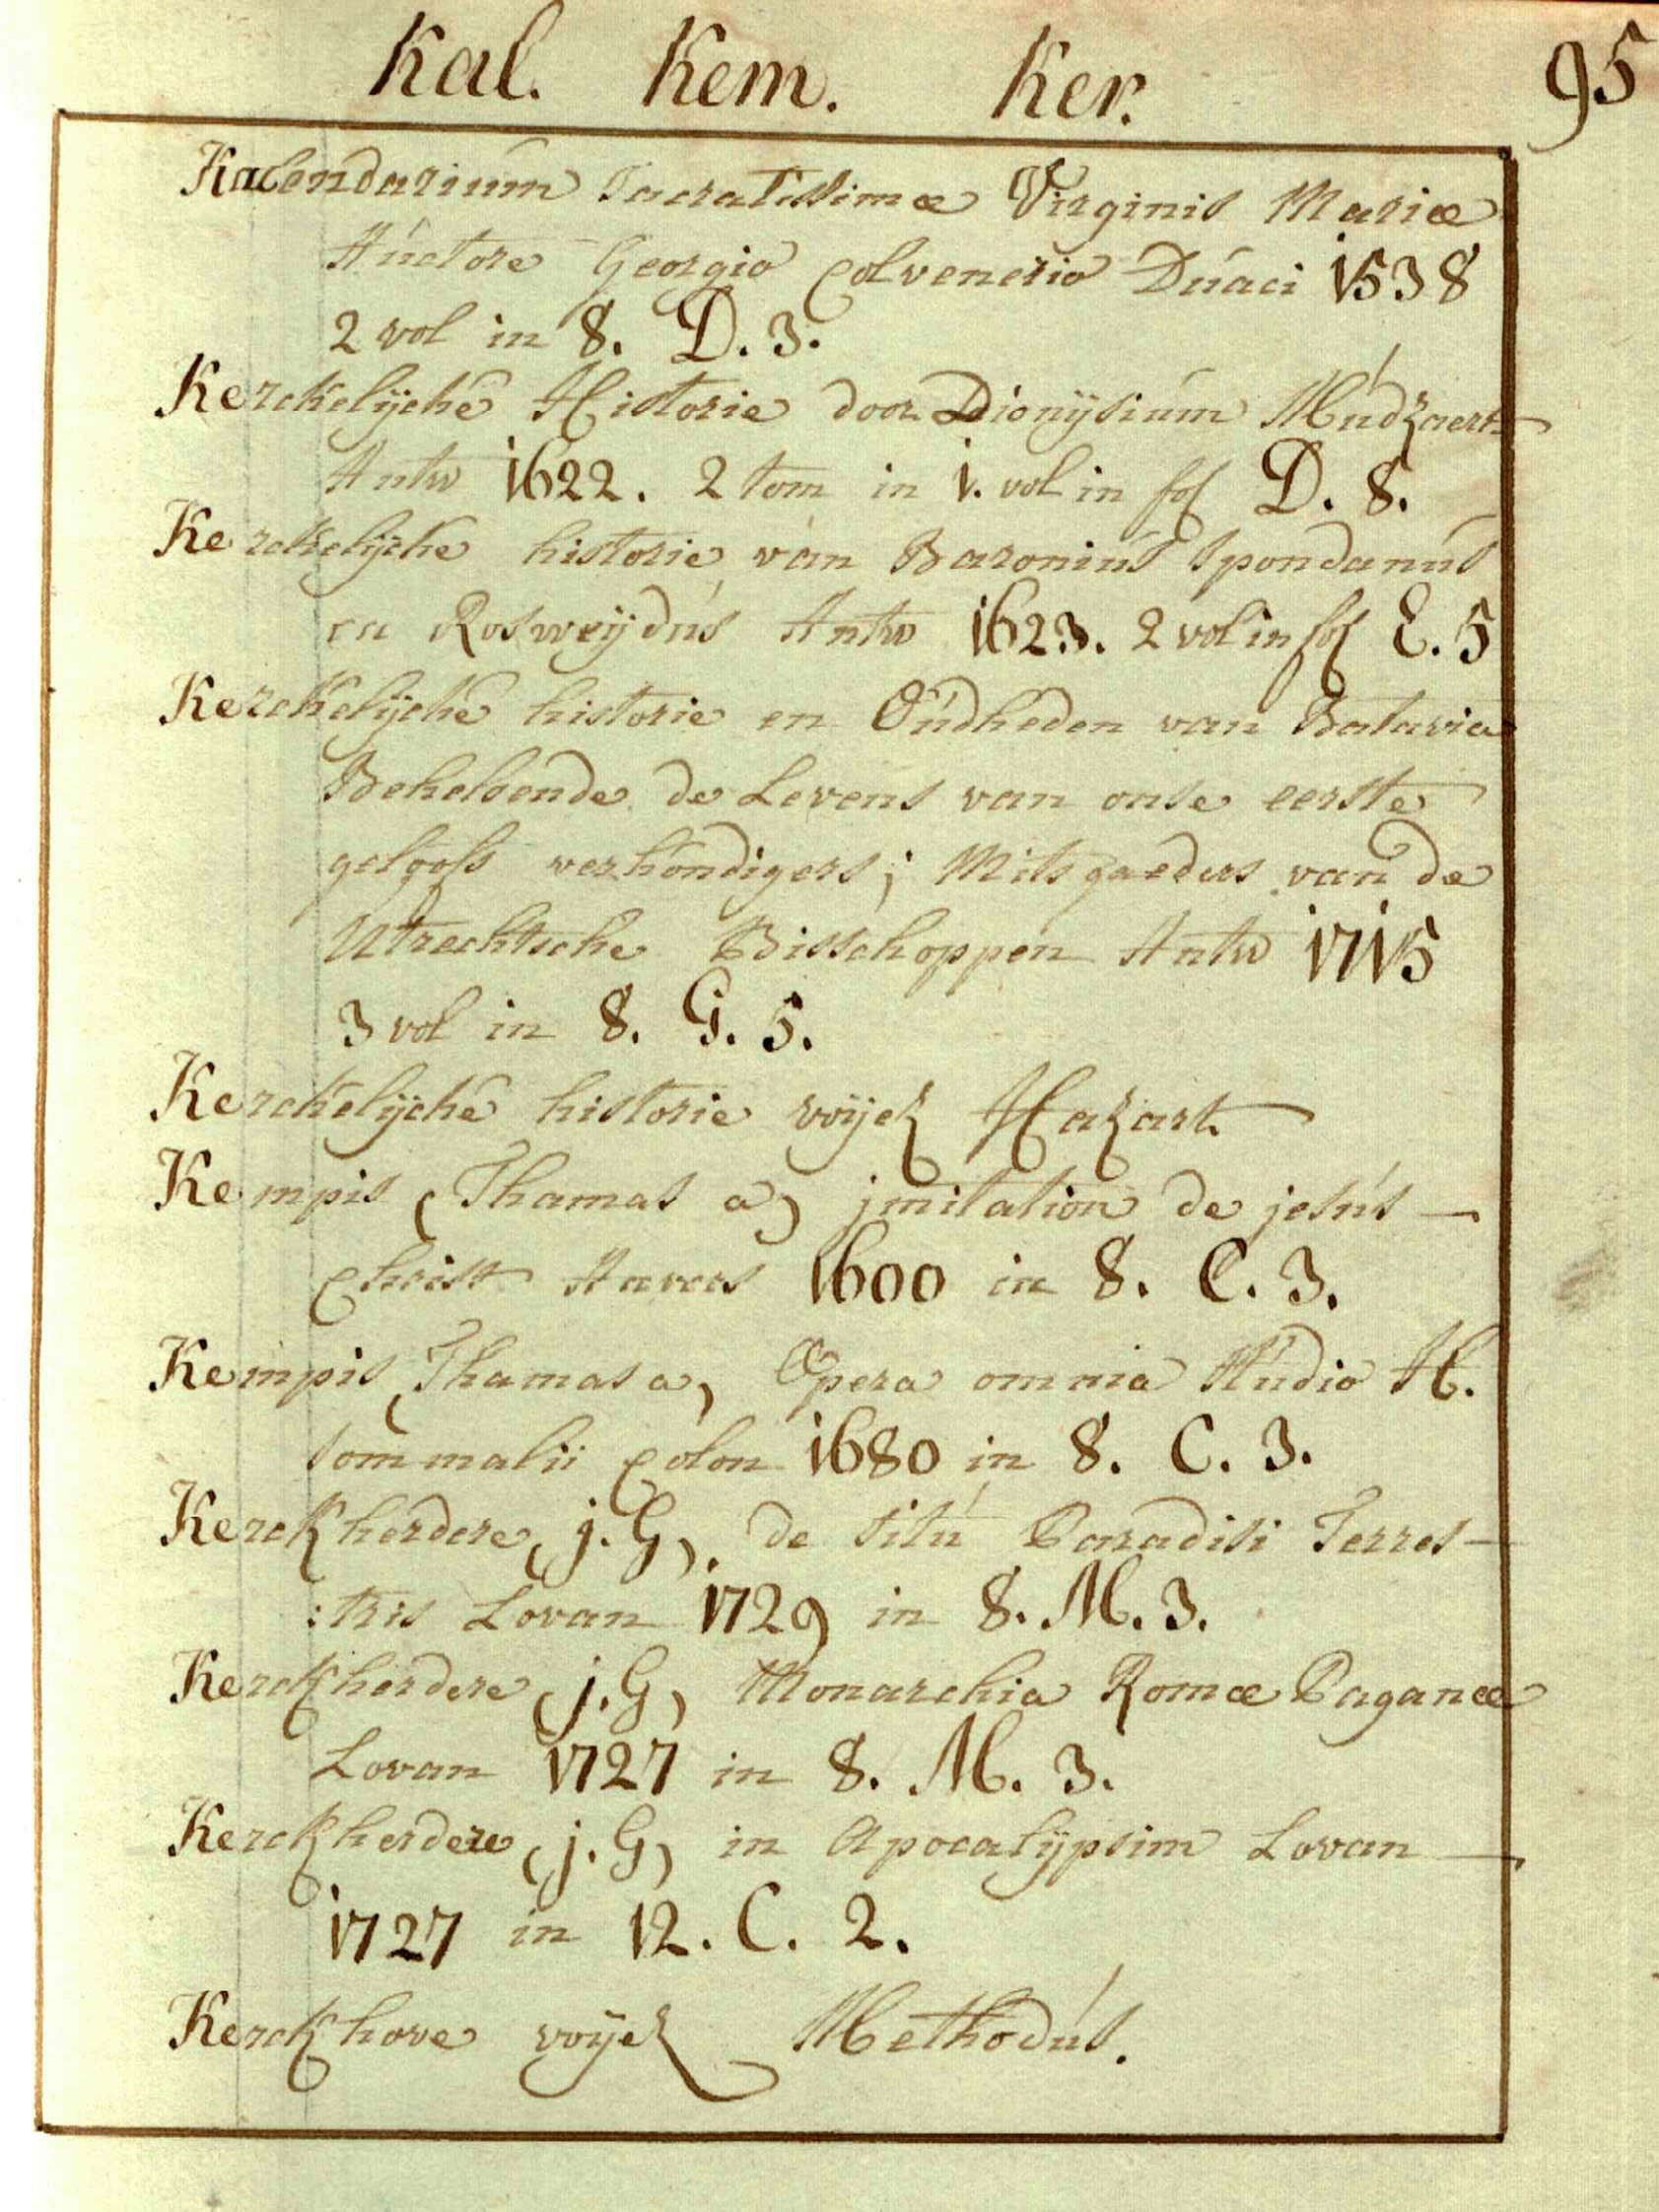 Kal. Kem. Ker. 95
Kalendarium Sacratissimæ Virginis Mariæ
Auctore Georgio Colvenerio Duaci 1538
2 vol in 8. D. 3.
Kerckelijcke Historie door Dionijsium Mudzaert
Antw 1622. 2 tom in 1. vol in fol D. 8.
Kerckelijcke historie van Baronius Spondanus
en Rosweijdus Antw 1623. 2 vol in fol E. 5
Kerckelijcke historie en Oudheden van Batavia
Behelsende de Levens van onse eerste
geloofs verkondigers; Mitsgaeders van de
Utrechtsche Bisschoppen Antw 1715
3 vol in 8. G. 5.
Kerckelijcke historie voijez Hazart
Kempis (Thamas a) jmitation de jesus
Christ Anvers 1600 in 8. C. 3.
Kempis (Thamas a) Opera omnia Studio H.
Sommalii Colon 1680 in 8. C. 3.
Kerckherdere (j. G). de Situ Paradisi Terres-
:tris Lovan 1729 in 8. M. 3.
Kerckherdere (j. G) Monarchia Romæ Paganæ
Lovan 1727 in 8. M. 3.
Kerckherdere (j. G) in Apocalijpsim Lovan
1727 in 12. C. 2.
Kerckhove voijez Methodus.